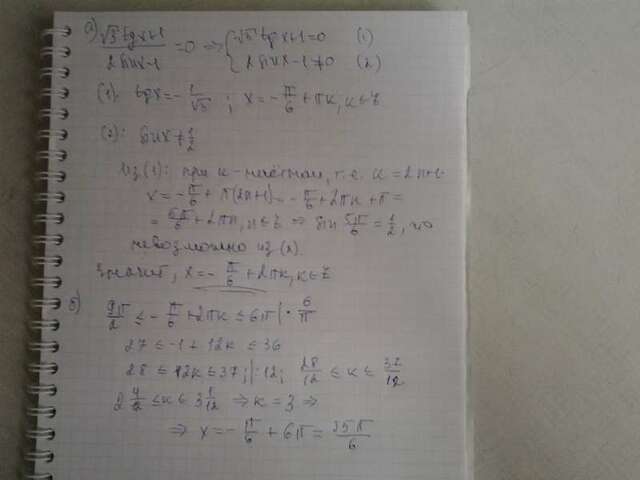 а) (√3 tgx+1)/(2sinx-1) =0 ⇒ {√3 tgx+1=0 (1)
{2 sinx-1≠0 (2)
(1): tgx=-1/√3 ; x=-π/6+πk, k∈Z
(2): sinx≠1/2
Из(1): при k-нечётном, т.е. k=2n+1
x=-π/6+π(2n+1)=-π/6+2πn+π=
=5π/6+2πn, n∈Z ⇒ sin 5π/6=1/2, что
невозможно из (2).
Значит, x=-π/6+2πk, k∈Z
б) 9π/2 ≤ -π/6+2πk ≤ 6π |·6/π
27 ≤ -1+12k ≤ 36
28 ≤ 12k ≤ 37; |:12; 28/12 ≤ k ≤ 37/12
2 4/12 ≤ k ≤ 3 1/12 ⇒ k=3 ⇒
⇒ x=-π/6+6π=35π/6